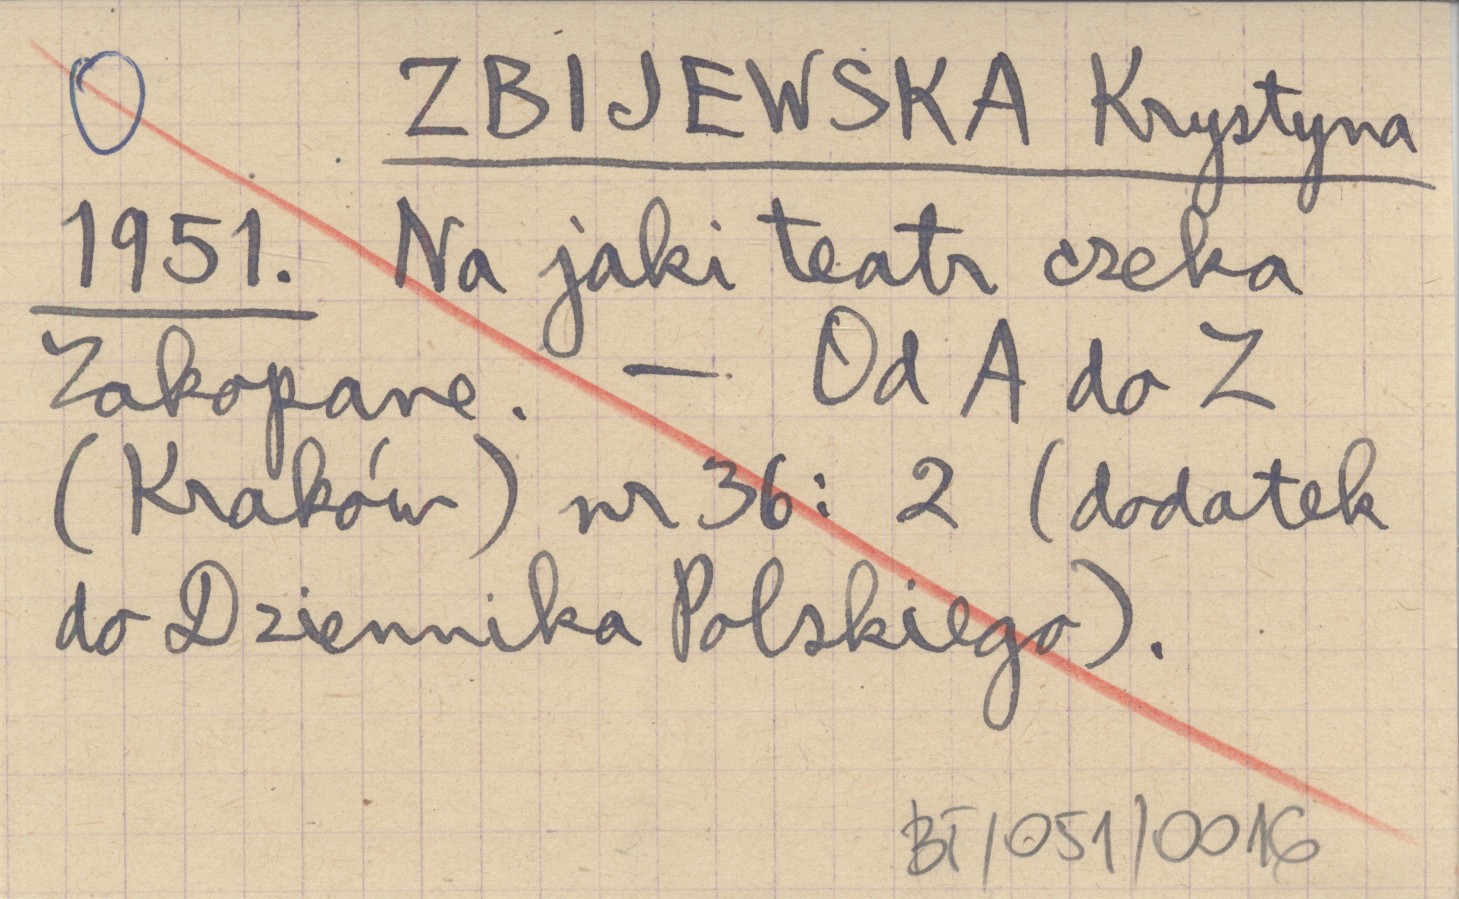 ZBIJEWSKA Krystyna
1951. Na jaki teatr czeka
Zakopane. — Od A do Z
(Kraków) nr 36: 2 (dodatek
do Dziennika Polskiego).
BT/051/0016